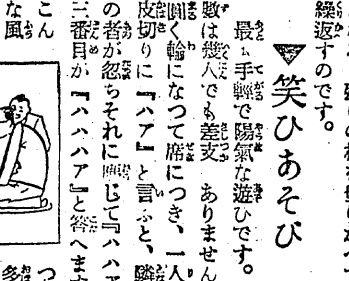 繰返すのです。
▼笑ひあそび
最も手輕で陽氣な遊びです。
數は幾人でも差支ありません
圓く輪になつて席につき、一人
皮切りに『ハア』と言ふと、隣
の者が忽ちそれに應じて『ハハア
三番目が『ハハハア』と答へます
こん
な風
つ
多